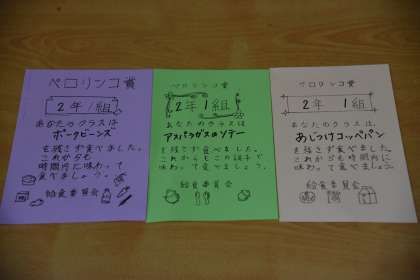 ペロリンコ賞
2年 1組
あなたのクラスは
ポークビーンズ
を残さず食べました。
これからも
時間内に味わって
食べましょう。
給食委員会
ペロリンコ賞
2年 1組
あなたのクラスは
アスパラガスのソテー
を残さず食べました。
これからもこの調子で
味わって食べましょう。
給食委員会
ペロリンコ賞
2年 1組
あなたのクラスは、
あじつけコッペパン
を残さず食べました。
これからも時間内に
味わって食べましょう。
給食委員会